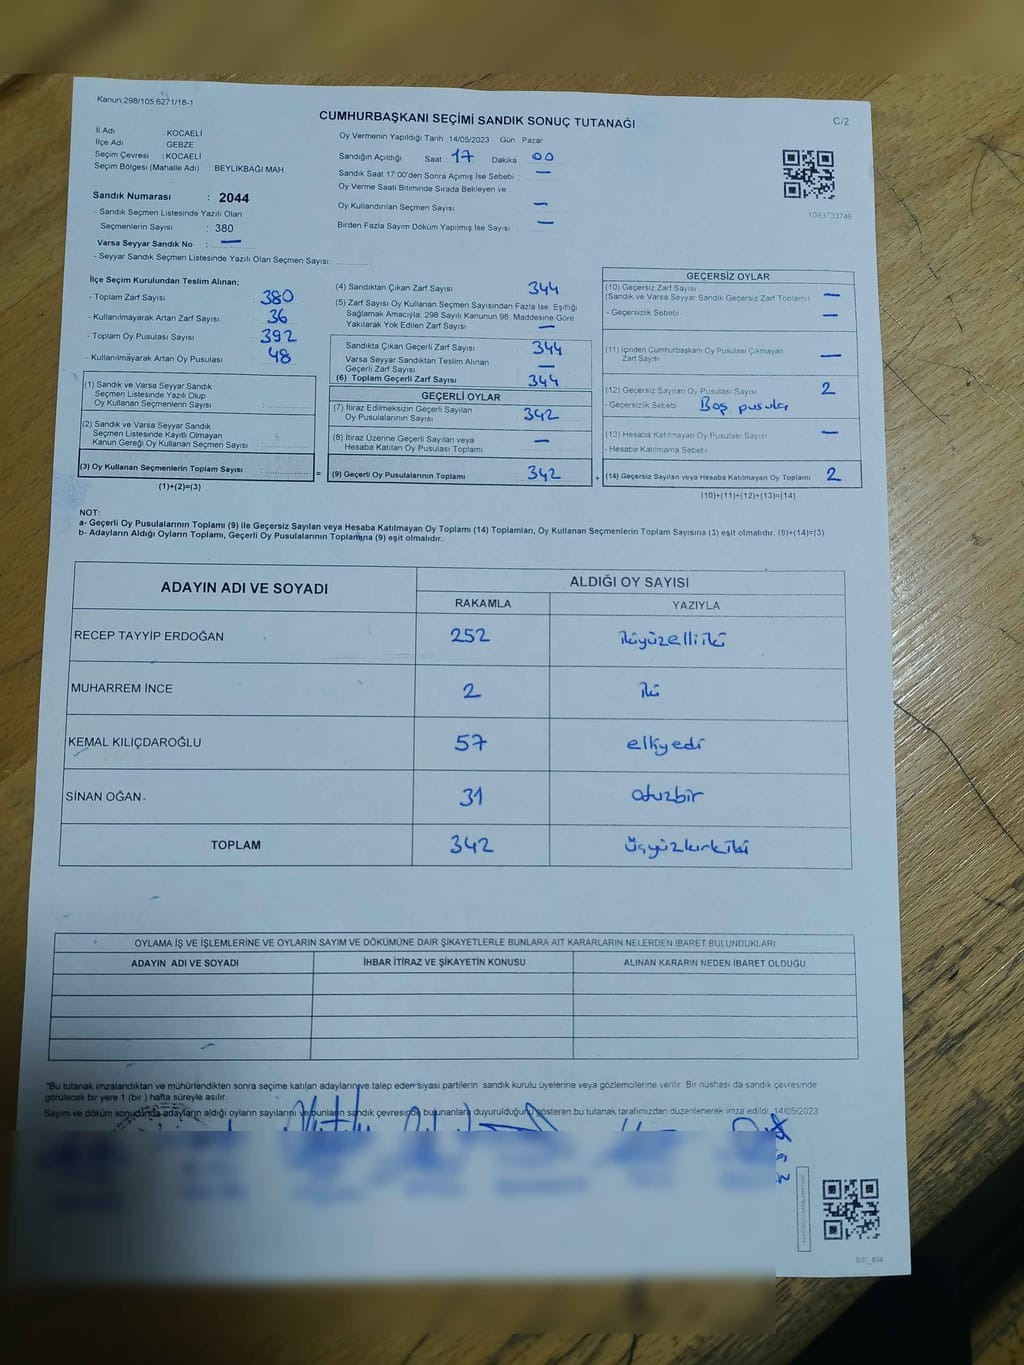 Kanun,298/105,6271/18-1
C/2
CUMHURBAŞKANI SEÇİMİ SANDIK SONUÇ TUTANAĞI
İl Adı : KOCAELİ
İlçe Adı : GEBZE
Seçim Çevresi : KOCAELİ
Seçim Bölgesi (Mahalle Adı) : BEYLİKBAĞI MAH
Sandık Numarası : 2044
- Sandık Seçmen Listesinde Yazılı Olan
Seçmenlerin Sayısı : 380
Varsa Seyyar Sandık No : —
- Seyyar Sandık Seçmen Listesinde Yazılı Olan Seçmen Sayısı:
Oy Vermenin Yapıldığı Tarih :14/05/2023 Gün Pazar
Sandığın Açıldığı Saat : 17 Dakika : 00
Sandık Saat 17:00'den Sonra Açımış İse Sebebi : —
Oy Verme Saati Bitiminde Sırada Bekleyen ve
Oy Kullandırılan Seçmen Sayısı : —
Birden Fazla Sayım Döküm Yapılmış İse Sayısı : —
1093733746
İlçe Seçim Kurulundan Teslim Alınan;
- Toplam Zarf Sayısı : 380
- Kullanılmayarak Artan Zarf Sayısı : 36
- Toplam Oy Pusulası Sayısı : 392
- Kullanılmayarak Artan Oy Pusulası : 48
(1) Sandık ve Varsa Seyyar Sandık
Seçmen Listesinde Yazılı Olup
Oy Kullanan Seçmenlerin Sayısı
(2) Sandık ve Varsa Seyyar Sandık
Seçmen Listesinde Kayıtlı Olmayan
Kanun Gereği Oy Kullanan Seçmen Sayısı
(3) Oy Kullanan Seçmenlerin Toplam Sayısı
(1)+(2)=(3)
(4) Sandıktan Çıkan Zarf Sayısı : 344
(5) Zarf Sayısı Oy Kullanan Seçmen Sayısından Fazla İse, Eşitliği
Sağlamak Amacıyla; 298 Sayılı Kanunun 98. Maddesine Göre
Yakılarak Yok Edilen Zarf Sayısı : —
Sandıkta Çıkan Geçerli Zarf Sayısı : 344
Varsa Seyyar Sandıktan Teslim Alınan
Geçerli Zarf Sayısı : —
(6) Toplam Geçerli Zarf Sayısı : 344
GEÇERLİ OYLAR
(7) İtiraz Edilmeksizin Geçerli Sayılan
Oy Pusulalarının Sayısı : 342
(8) İtiraz Üzerine Geçerli Sayılan veya
Hesaba Katılan Oy Pusulaları Toplamı : —
= (9) Geçerli Oy Pusulalarının Toplamı : 342
GEÇERSİZ OYLAR
(10) Geçersiz Zarf Sayısı
(Sandık ve Varsa Seyyar Sandık Geçersiz Zarf Toplamı) : —
- Geçersizlik Sebebi : —
(11) İçinden Cumhurbaşkanı Oy Pusulası Çıkmayan
Zarf Sayısı : —
(12) Geçersiz Sayılan Oy Pusulası Sayısı : 2
- Geçersizlik Sebebi : Boş pusula
(13) Hesaba Katılmayan Oy Pusulası Sayısı : —
- Hesaba Katılmama Sebebi :
+ (14) Geçersiz Sayılan veya Hesaba Katılmayan Oy Toplamı 2
(10)+(11)+(12)+(13)=(14)
NOT:
a- Geçerli Oy Pusulalarının Toplamı (9) ile Geçersiz Sayılan veya Hesaba Katılmayan Oy Toplamı (14) Toplamları, Oy Kullanan Seçmenlerin Toplam Sayısına (3) eşit olmalıdır. (9)+(14)=(3)
b- Adayların Aldığı Oyların Toplamı, Geçerli Oy Pusulalarının Toplamına (9) eşit olmalıdır.
ADAYIN ADI VE SOYADI
ALDIĞI OY SAYISI
RAKAMLA YAZIYLA
RECEP TAYYİP ERDOĞAN 252 ikiyüzelliiki
MUHARREM İNCE 2 iki
KEMAL KILIÇDAROĞLU 57 elliyedi
SİNAN OĞAN 31 otuzbir
TOPLAM 342 üçyüzkırkiki
OYLAMA İŞ VE İŞLEMLERİNE VE OYLARIN SAYIM VE DÖKÜMÜNE DAİR ŞİKAYETLERLE BUNLARA AİT KARARLARIN NELERDEN İBARET BULUNDUKLARI
ADAYIN ADI VE SOYADI İHBAR İTİRAZ VE ŞİKAYETİN KONUSU ALINAN KARARIN NEDEN İBARET OLDUĞU
*Bu tutanak imzalandıktan ve mühürlendikten sonra seçime katılan adayların ve talep eden siyasi partilerin sandık kurulu üyelerine veya gözlemcilerine verilir. Bir nüshası da sandık çevresinde
görülecek bir yere 1 (bir) hafta süreyle asılır.
Sayım ve döküm sonucunda adayların aldığı oyların sayılarını ve bunların sandık çevresinde bulunanlara duyurulduğunu gösteren bu tutanak tarafımızdan düzenlenerek imza edildi. 14/05/2023